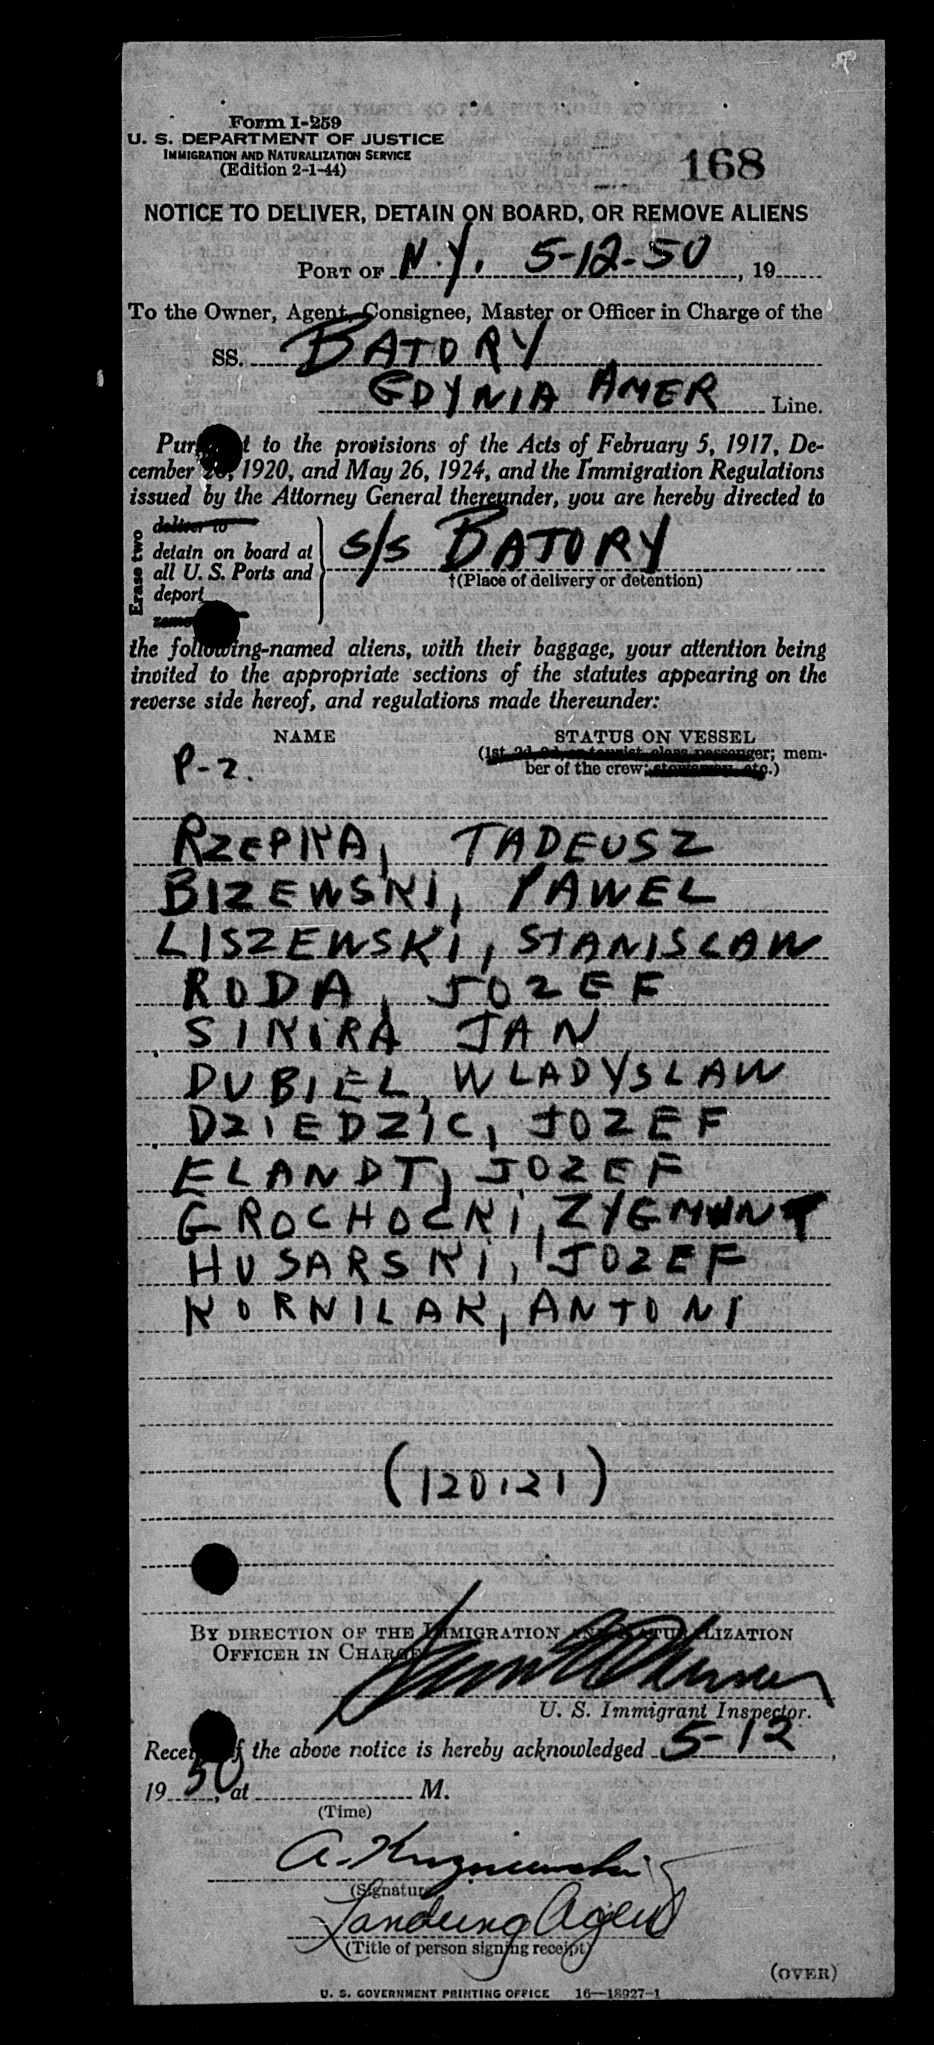 Form I-259
U. S. DEPARTMENT OF JUSTICE
IMMIGRATION AND NATURALIZATION SERVICE
(Edition 2-1-44)
168
NOTICE TO DELIVER, DETAIN ON BOARD, OR REMOVE ALIENS
PORT OF N.Y. 5-12-50, 19
To the Owner, Agent, Consignee, Master or Officer in Charge of the
SS. BATORY
GDYNIA AMER Line.
Pursuant to the provisions of the Acts of February 5, 1917, De-
cember 26, 1920, and May 26, 1924, and the Immigration Regulations
issued by the Attorney General thereunder, you are hereby directed to
Erase two
deliver to
detain on board at
all U. S. Ports and
deport
s/s BATORY
†(Place of delivery or detention)
the following-named aliens, with their baggage, your attention being
invited to the appropriate sections of the statutes appearing on the
reverse side hereof, and regulations made thereunder:
NAME
STATUS ON VESSEL
(1st, 2d, 3d, or tourist class passenger; mem-
ber of the crew; stowaway, etc.)
P-2.
RZEPKA, TADEUSZ
BIZEWSKI, PAWEL
LISZEWSKI, STANISLAW
RODA, JOZEF
SIKIRA JAN
DUBIEL, WLADYSLAW
DZIEDZIC, JOZEF
ELANDT, JOZEF
GROCHOCKI, ZYGMUNT
HUSARSKI, JOZEF
KORNILAK, ANTONI
(120121)
BY DIRECTION OF THE IMMIGRATION AND NATURALIZATION
OFFICER IN CHARGE
U. S. Immigrant Inspector.
Receipt of the above notice is hereby acknowledged 5-12,
1950, at M.
(Time)
A.
(Signature)
Landing Agent
(Title of person signing receipt)
(OVER)
U. S. GOVERNMENT PRINTING OFFICE 16—18927-1